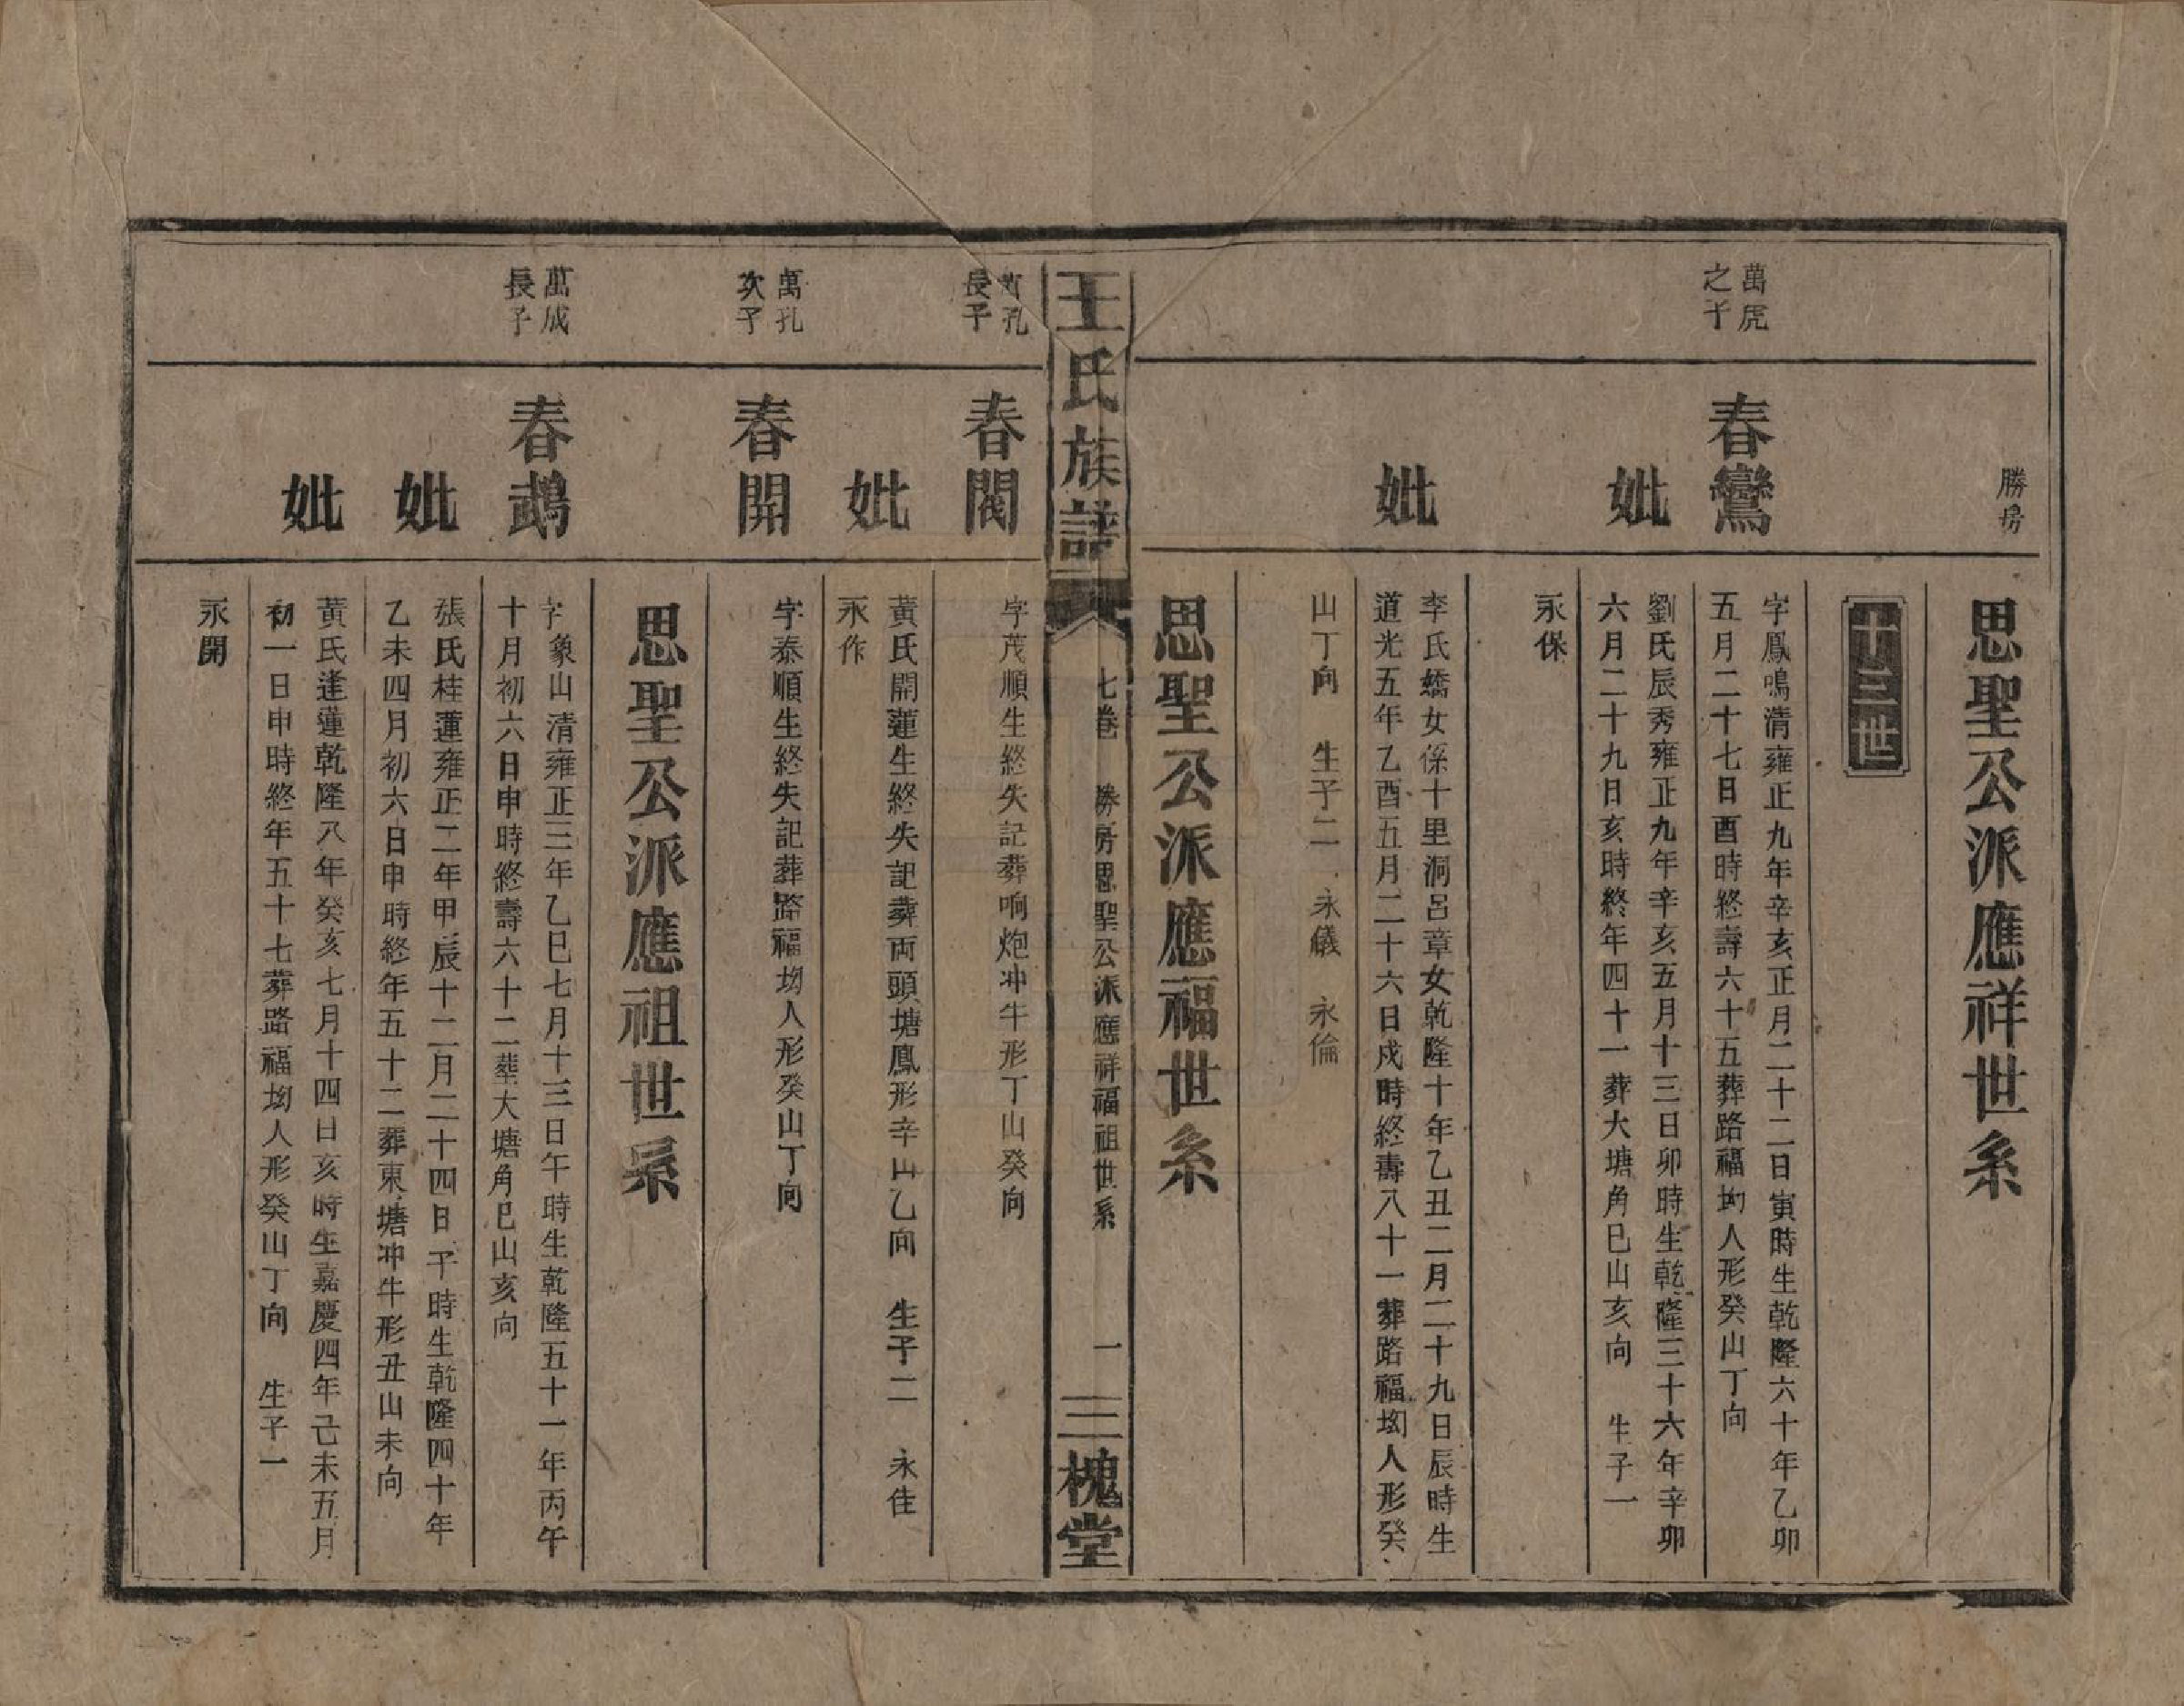 勝房
思聖公派應祥世系
十三世
萬虎
之子
春鸞
字鳳鳴清雍正九年辛亥正月二十二日寅時生乾隆六十年乙卯
五月二十七日酉時終壽六十五葬路福坳人形癸山丁向
妣
劉氏辰秀雍正九年辛亥五月十三日卯時生乾隆三十六年辛卯
六月二十九日亥時終年四十一葬大塘角巳山亥向 生子一
永保
妣
李氏嬌女係十里洞呂章女乾隆十年乙丑二月二十九日辰時生
道光五年乙酉五月二十六日戍時終壽八十一葬路福坳人形癸
山丁向 生子二 永儀 永倫
思聖公派應福世系
王氏族譜
七卷 勝房思聖公派應祥福祖世系
一
三槐堂
萬孔
長子
春閣
字茂順生終失記葬响炮冲牛形丁山癸向
妣
黃氏開蓮生終失記葬両頭塘鳳形辛山乙向 生子二 永佳
永作
萬孔
次子
春開
字泰順生終失記葬路福坳人形癸山丁向
思聖公派應祖世系
萬成
長子
春鵡
字象山清雍正三年乙巳七月十三日午時生乾隆五十一年丙午
十月初六日申時終壽六十二葬大塘角巳山亥向
妣
張氏桂蓮雍正二年甲辰十二月二十四日子時生乾隆四十年
乙未四月初六日申時終年五十二葬東塘冲牛形丑山未向
妣
黃氏逢蓮乾隆八年癸亥七月十四日亥時生嘉慶四年己未五月
初一日申時終年五十七葬路福坳人形癸山丁向 生子一
永開